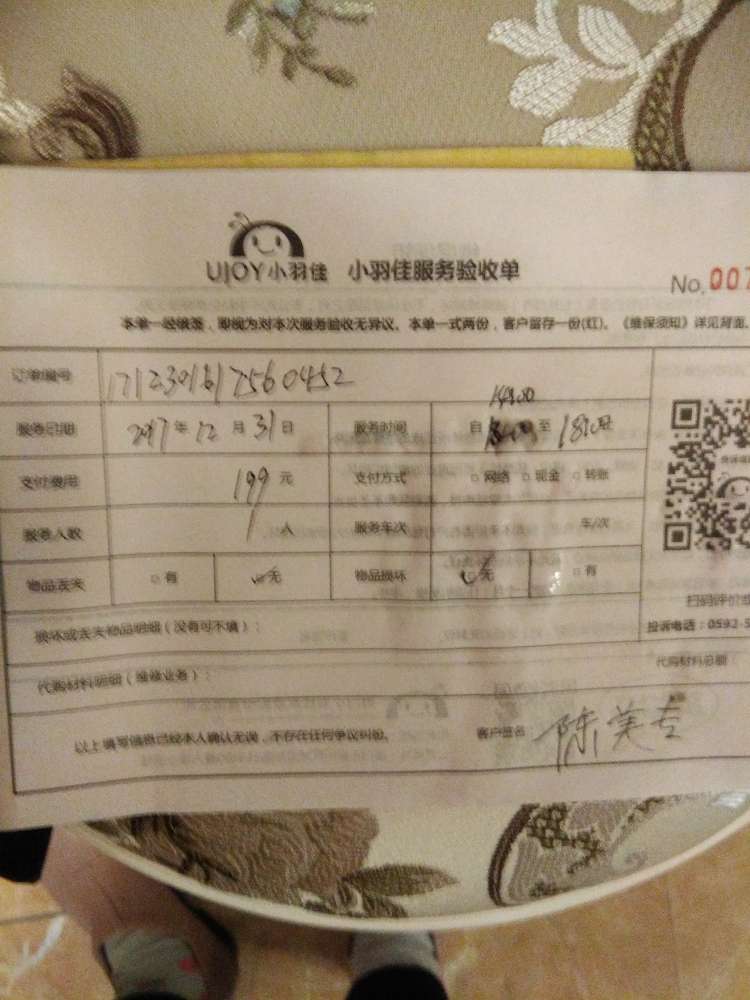 UJOY小羽佳 小羽佳服务验收单
No.007
本单一经填写，即视为对本次服务验收无异议。本单一式两份，客户留存一份(红)。《维保须知》详见背面。
订单编号
服务日期 2017年12月31日 服务时间 自14:00至18:00
支付费用 199元 支付方式 □网络 □现金 □转账
服务人数 1人 服务车次 车/次
物品丢失 □有 ☑无 物品损坏 ☑无 □有
扫码评价或
损坏或丢失物品明细（没有可不填）：
投诉电话：0592-5
代购材料明细（维修业务）：
代购材料总额：
以上填写信息已经本人确认无误，不存在任何争议纠纷。 客户签名